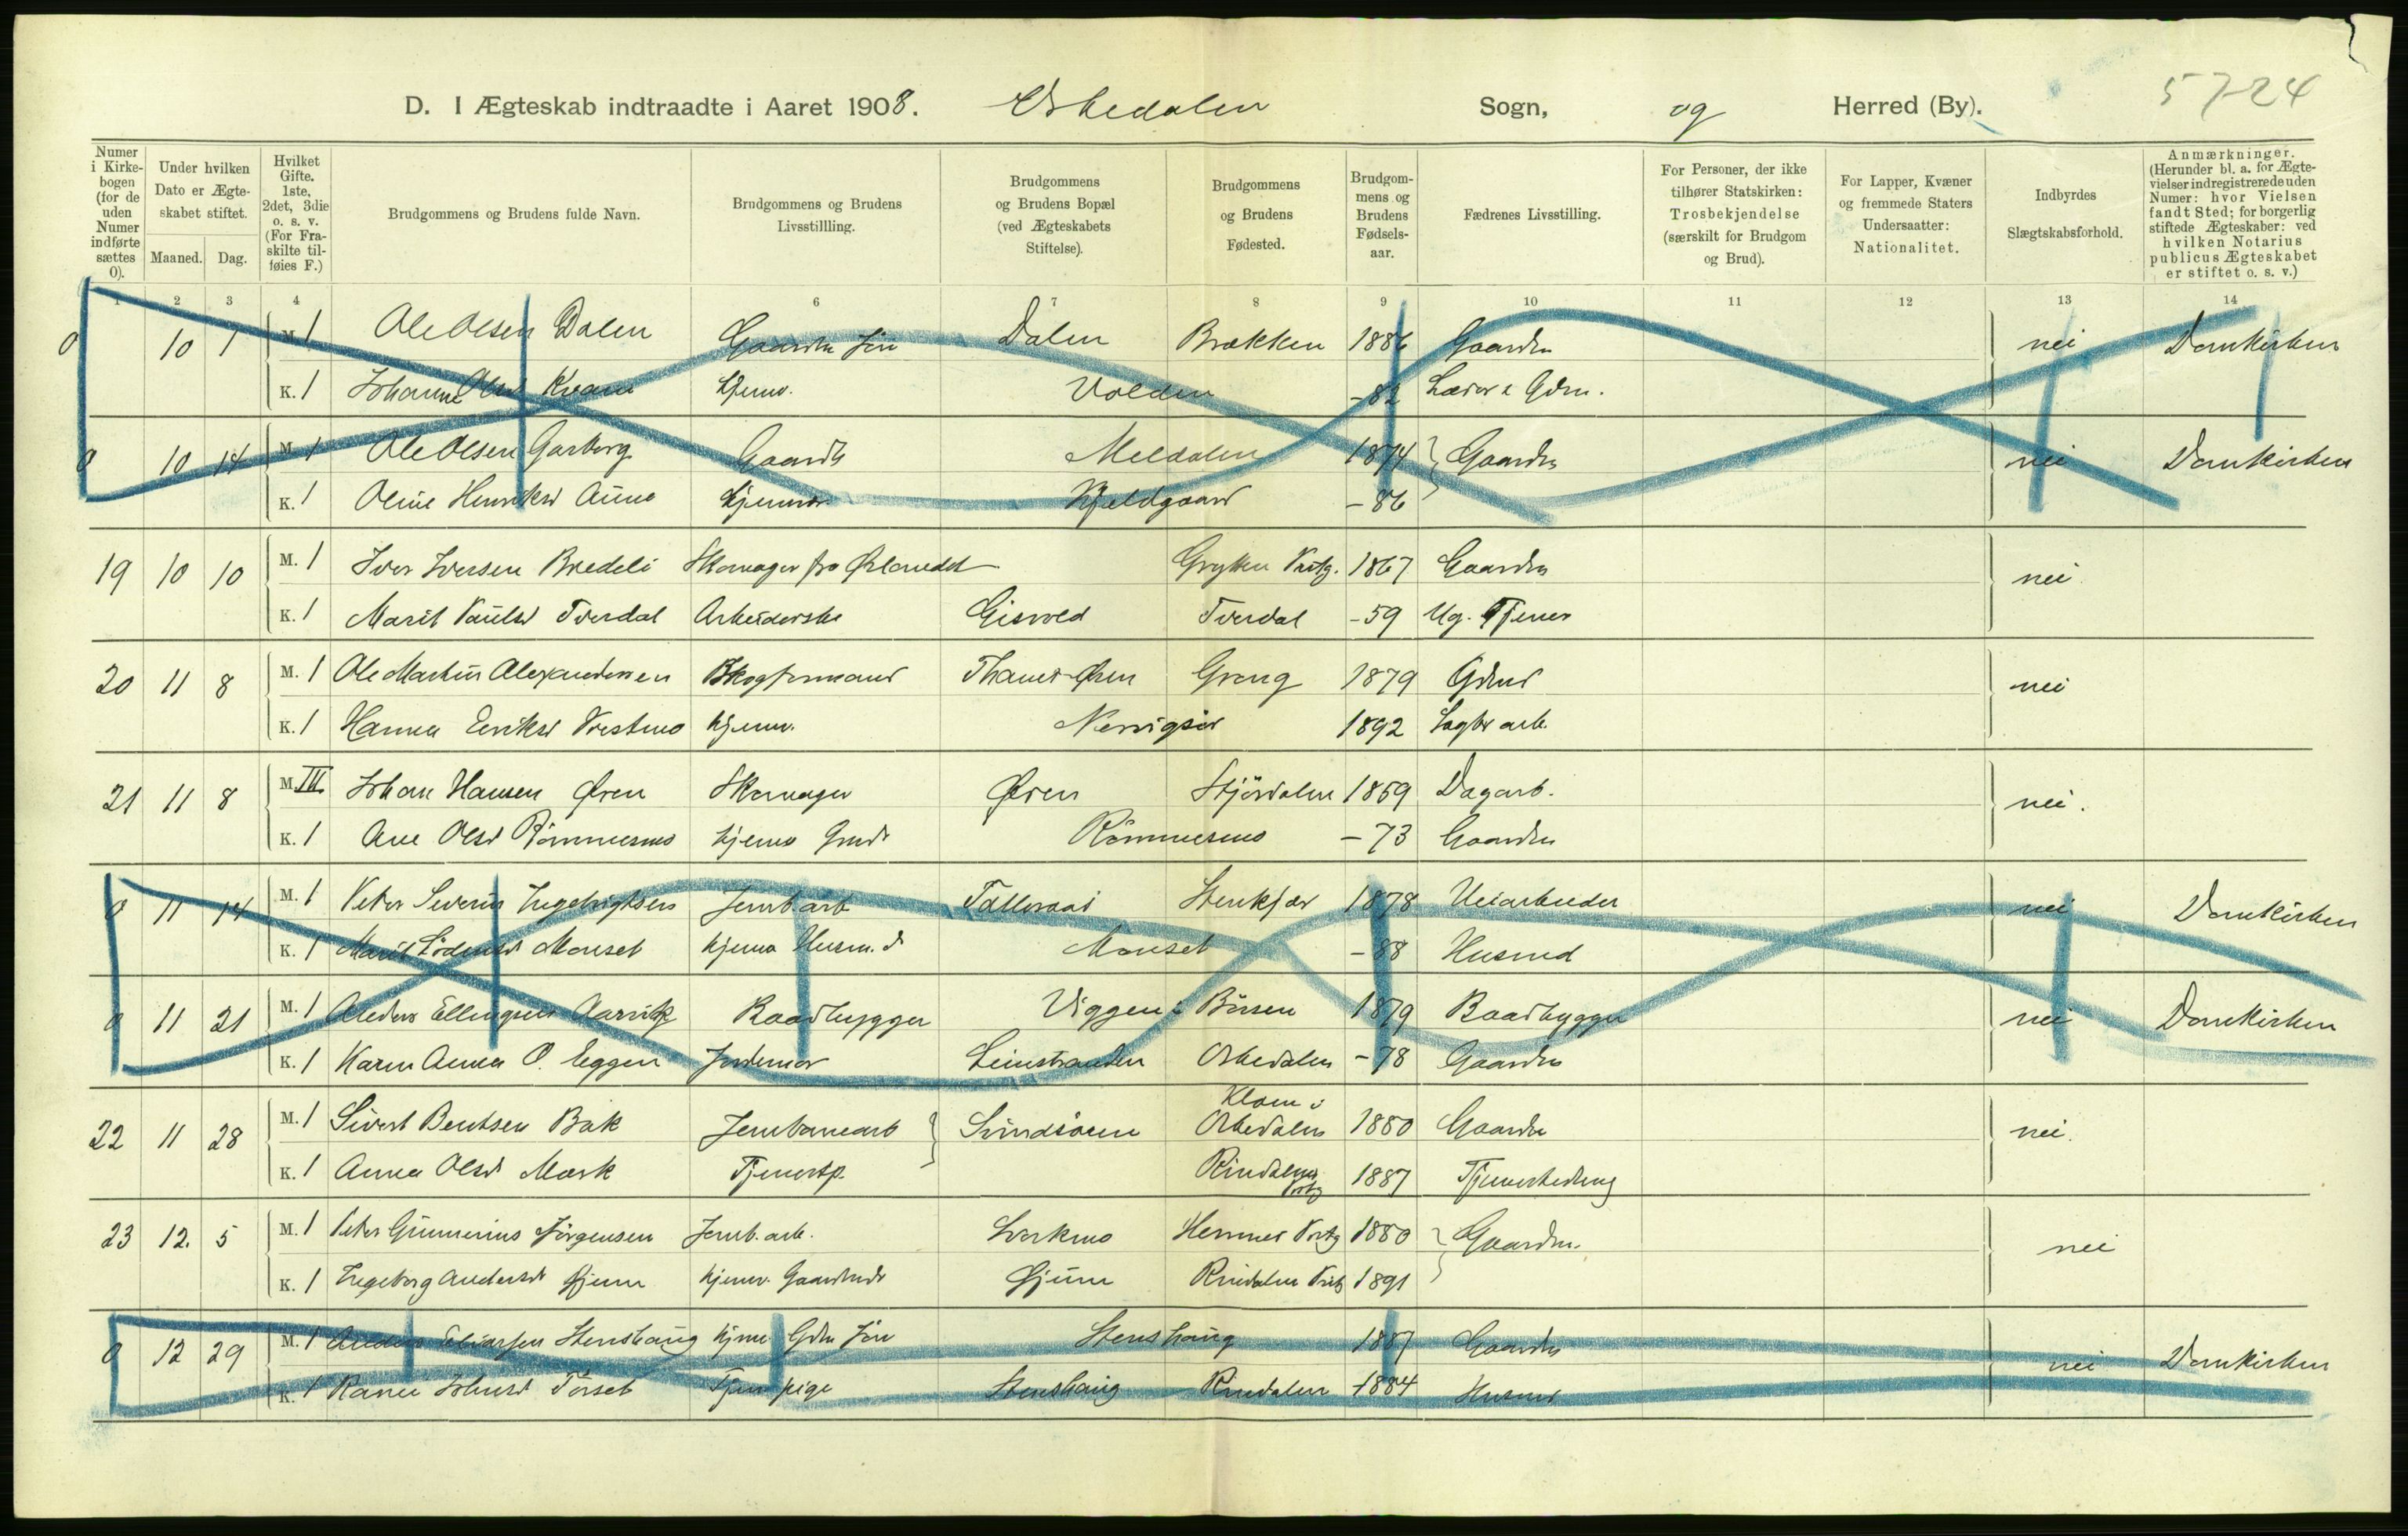 D. I Ægteskab indtraadte i Aaret 1908. Orkedalen Sogn, og Herred (By). 57-24
Numer i Kirkebogen (for de uden Numer indførte sættes 0).
Under hvilken Dato er Ægteskabet stiftet.
Maaned. Dag.
Hvilket Gifte. 1ste, 2det, 3die o. s. v. (For Fraskilte tilføies F.)
Brudgommens og Brudens fulde Navn.
Brudgommens og Brudens Livsstillling.
Brudgommens og Brudens Bopæl (ved Ægteskabets Stiftelse).
Brudgommens og Brudens Fødested.
Brudgommens og Brudens Fødselsaar.
Fædrenes Livsstilling.
For Personer, der ikke tilhører Statskirken: Trosbekjendelse (særskilt for Brudgom og Brud).
For Lapper, Kvæner og fremmede Staters Undersaatter: Nationalitet.
Indbyrdes Slægtskabsforhold.
Anmærkninger. (Herunder bl. a. for Ægtevielser indregistrerede uden Numer: hvor Vielsen fandt Sted; for borgerlig stiftede Ægteskaber: ved hvilken Notarius publicus Ægteskabet er stiftet o. s. v.)
1 2 3 4 6 7 8 9 10 11 12 13 14
0 10 1 M. 1 Ole Olsen Dalen Gaardm Søn Dalen Brækken 1886 Gaardm nei Domkirken
K. 1 Johanna Olsd Kvam hjemv. Volden -82 Lærer & Gdm.
0 10 14 M. 1 Ole Olsen Garberg Gaardb Meldalen 1874 Gaardm nei Domkirken
K. 1 Oline Henriksd Aune hjemv. Kjeldgaard -86
19 10 10 M. 1 Iver Iversen Bredeli Skomager fra Ørlandet Grytten 1867 Gaardm nei
K. 1 Marit Paulsd Tverdal Arbeiderske Gisvold Tverdal -59 Ug. Tjener
20 11 8 M. 1 Ole Martin Alexandersen Skogformand Thams-Øren Grong 1879 Gdmd nei
K. 1 Hanna Eriksd hjemv. 1892 Sagbr arb.
21 11 8 M. III. Johan Hansen Øren Skomager Øren Stjørdalen 1859 Dagarb. nei.
K. 1 Ane Olsd Rømmesmo hjemv Gmdr Rømmesmo -73 Gaardm
0 11 14 M. 1 Peter Severin Ingebrigtsen Jernb.arb Stenkjær 1878 Veiarbeider nei Domkirken
K. 1 Marit Monset hjemv Husm. d Monset -88 Husmd
0 11 21 M. 1 Anders Ellingsen Baadbygger Viggen i Børsen 1879 Baadbygger nei Domkirken
K. 1 Karen Anna O. Eggen Jordemor Leinstranden Orkedalen -78 Gaardm
22 11 28 M. 1 Sivert Bentsen Bak Jernbanearb Klom i Orkedalen 1880 Gaardm nei.
K. 1 Anna Olsd Mærk Tjenestp. Rindalen 1887
23 12. 5 M. 1 Peter Gunnerius Jørgensen Jernb. arb. 1880 Gaardm. nei
K. 1 Ingeborg Andersd Gjum hjemv. Gaardmdr Gjum Rindalen 1891
0 12 29 M. 1 Anders Stenshaug hjmv Gdm Søn Stenshaug 1887 Gaardm nei Domkirken
K. 1 Johnsd Torset Tjen pige Stenshaug Rindalen 1884 Husmd